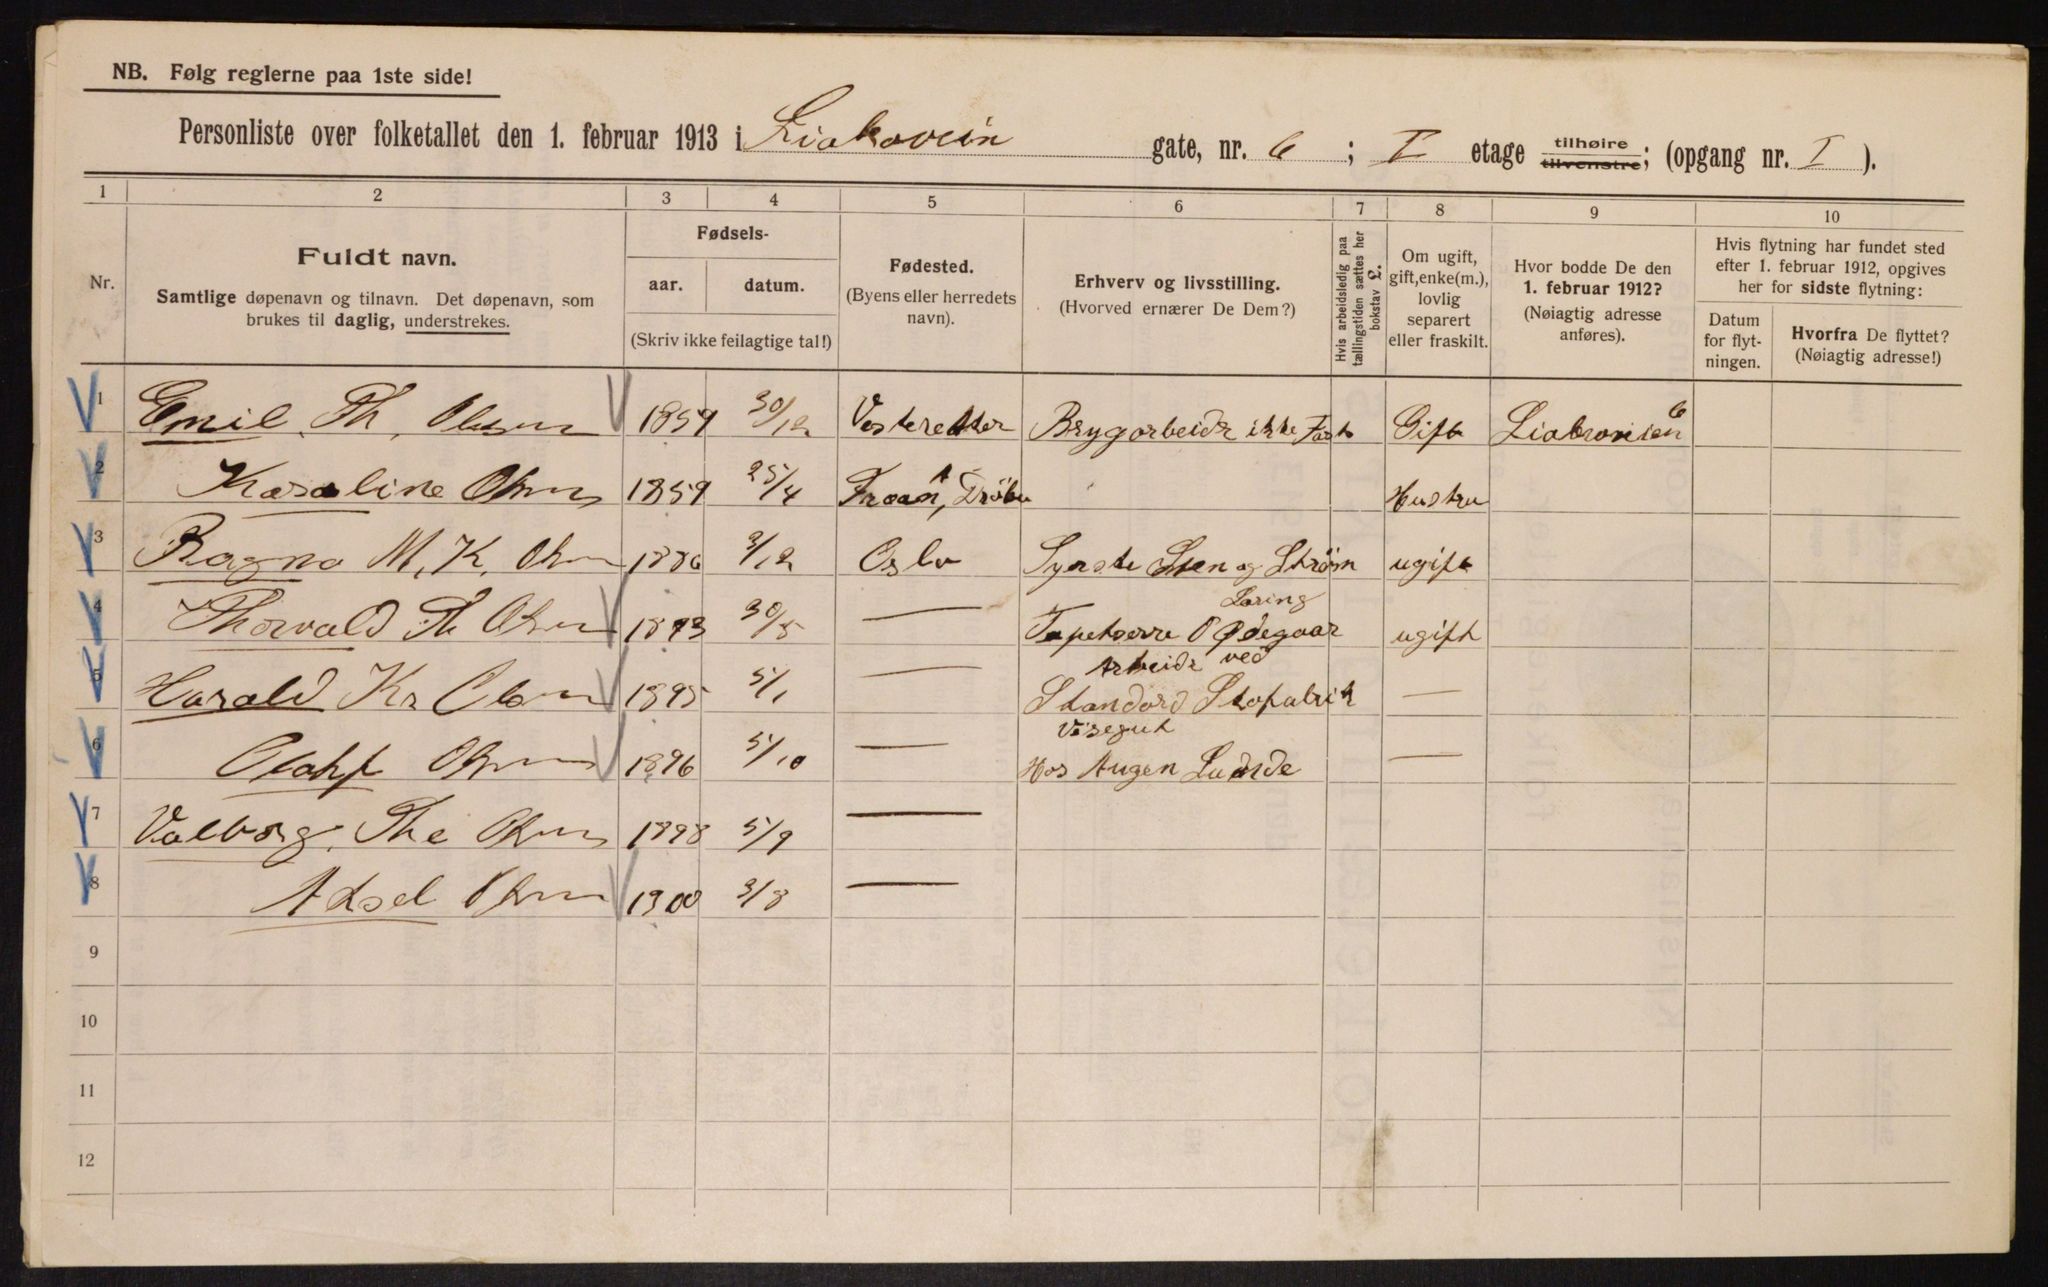 NB. Følg reglerne paa 1ste side!
Personliste over folketallet den 1. februar 1913 i Liakovein gate, nr. 6 ; I etage tilhøire tilvenstre; (opgang nr. I ).
1 2 3 4 5 6 7 8 9 10
Nr.
Fuldt navn.
Samtlige døpenavn og tilnavn. Det døpenavn, som
brukes til daglig, understrekes.
Fødsels-
aar. datum.
(Skriv ikke feilagtige tal!)
Fødested.
(Byens eller herredets
navn).
Erhverv og livsstilling.
(Hvorved ernærer De Dem?)
Hvis arbeidsledig paa
tællingstiden sættes her
bokstav L.
Om ugift,
gift, enke(m.),
lovlig
separert
eller fraskilt.
Hvor bodde De den
1. februar 1912?
(Nøiagtig adresse
anføres).
Hvis flytning har fundet sted
efter 1. februar 1912, opgives
her for sidste flytning:
Datum
for flyt-
ningen.
Hvorfra De flyttet?
(Nøiagtig adresse!)
1 Emil Th. Olsen 1859 30/12 Brygarbeidr ikke Fast Gift 6
2 Karoline Olsen 1859 25/4 Hustru
3 Ragna M. K. Olsen 1886 3/12 Oslo Syerske Sten og Strøm ugift
4 Thorvald Th Olsen 1893 30/5 — Ødegaar ugift
Arbeidr ved
5 Harald Kr Olsen 1895 5/1 — Standard Skofabrik —
Visegut
6 Olaff Olsen 1896 5/10 — Hos Augen —
7 Valborg The Olsen 1898 5/9 —
8 Aksel Olsen 1900 3/8 —
9
10
11
12